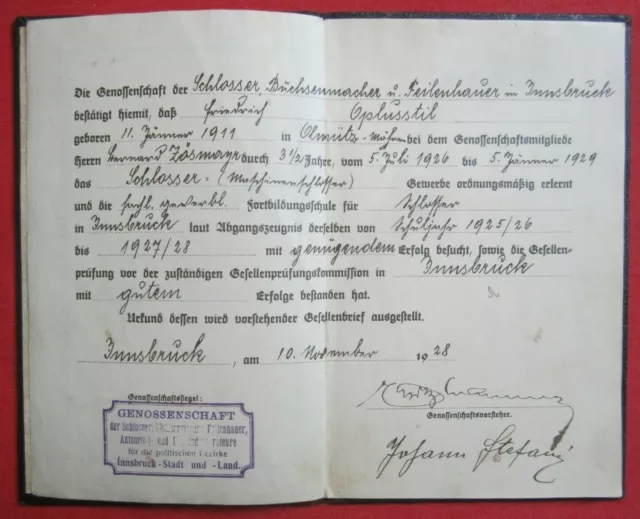 Die Genossenschaft der Schlosser, Büchsenmacher u. Feilenhauer in Innsbruck
bestätigt hiemit, daß Friedrich Oplusstil
geboren 11. Jänner 1911 in Olmütz-Mähren bei dem Genossenschaftsmitgliede
Herrn Bernard Zösmayr durch 3 1/2 Jahre, vom 5. Juli 1926 bis 5. Jänner 1929
das Schlosser- (Maschinenschlosser) Gewerbe ordnungsmäßig erlernt
und die fachl. gewerbl. Fortbildungsschule für Schlosser
in Innsbruck laut Abgangszeugnis derselben von Schuljahr 1925/26
bis 1927/28 mit genügendem Erfolg besucht, sowie die Gesellen-
prüfung vor der zuständigen Gesellenprüfungskommission in Innsbruck
mit gutem Erfolge bestanden hat.
Urkund dessen wird vorstehender Gesellenbrief ausgestellt.
Innsbruck, am 10. November 1928
Genossenschaftssiegel:
GENOSSENSCHAFT
der Schlosser, Feilenhauer,
und
für die politischen Bezirke
Innsbruck-Stadt und -Land.
Genossenschaftsvorsteher.
Johann Stefani